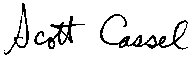 Scott Cassel